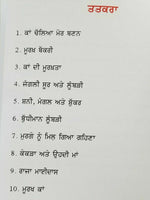 ਤਤਕਰਾ
1. ਕਾਂ ਚੱਲਿਆ ਮੋਰ ਬਣਨ
2. ਮੂਰਖ਼ ਬੱਕਰੀ
3. ਕਾਂ ਦੀ ਮੂਰਖ਼ਤਾ
4. ਜੰਗਲੀ ਸੂਰ ਅਤੇ ਲੂੰਬੜੀ
5. ਸ਼ਨੀ, ਮੰਗਲ ਅਤੇ ਸ਼ੁੱਕਰ
6. ਬੁੱਧੀਮਾਨ ਲੂੰਬੜੀ
7. ਮੁਰਗੇ ਨੂੰ ਮਿਲ ਗਿਆ ਗਹਿਣਾ
8. ਕੇਕੜਾ ਅਤੇ ਉਹਦੀ ਮਾਂ
9. ਰਾਜਾ ਮਾਈਦਾਸ
10. ਮੂਰਖ ਕਾਂ